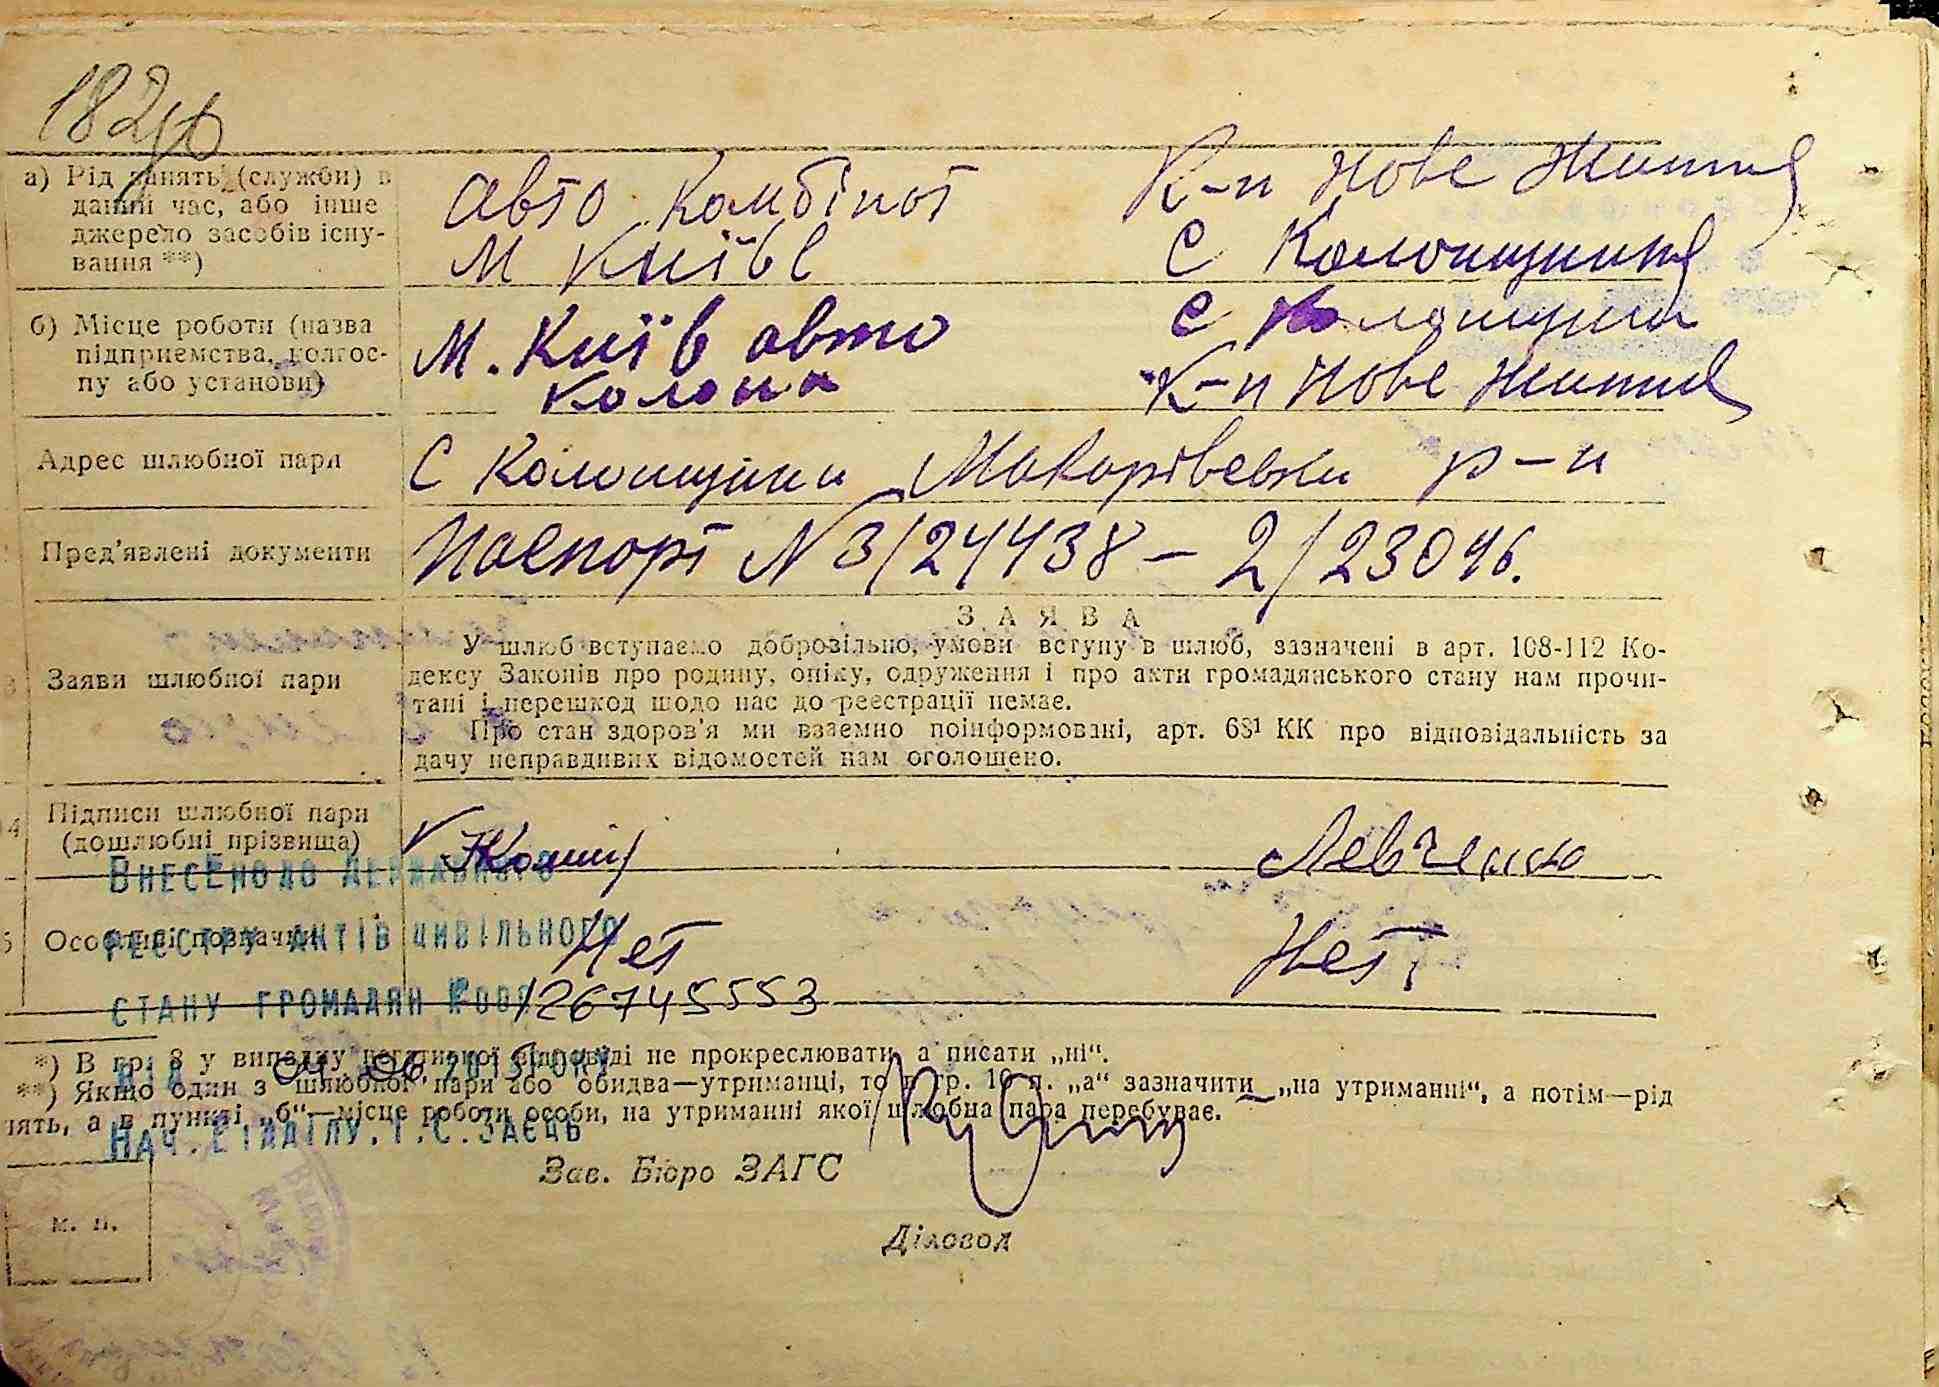 182
а) Рід занять (служби) в
даний час, або інше
джерело засобів існу-
вання **)
Авто Комбінат
М Київі
К-п Нове Життя
С Колонщина
б) Місце роботи (назва
підприємства, колгос-
пу або установи)
М. Київ авто
Колона
С Колонщина
К-п Нове Життя
Адрес шлюбної пари
С Колонщина Макарівськи р-н
Пред'явлені документи
Паспорт N 3/24438 — 2/23046.
ЗАЯВА
Заяви шлюбної пари
У шлюб вступаємо добровільно, умови вступу в шлюб, зазначені в арт. 108-112 Ко-
дексу Законів про родину, опіку, одруження і про акти громадянського стану нам прочи-
тані і перешкод щодо нас до реєстрації немає.
Про стан здоров'я ми взаємно поінформовані, арт. 68¹ КК про відповідальність за
дачу неправдивих відомостей нам оголошено.
4 Підписи шлюбної пари
(дошлюбні прізвища)
Левченко
ВНЕСЕНО ДО ДЕРЖАВНОГО
РЕЄСТРУ АКТІВ ЦИВІЛЬНОГО
5 Особливі позначки
Нет
Нет
СТАНУ ГРОМАДЯН №00126745553
*) В гр. 8 у випадку негативної відповіді не прокреслювати, а писати „ні“.
04.06.2013 РОКУ
**) Якщо один з шлюбної пари або обидва—утриманці, то в гр. 10 п. „а“ зазначити „на утриманні“, а потім—рід
нять, а в пункті „б“—місце роботи особи, на утриманні якої шлюбна пара перебуває.
НАЧ.ВІДДІЛУ.Г.С.ЗАЄЦЬ
Зав. Бюро ЗАГС
м. п.
Діловод